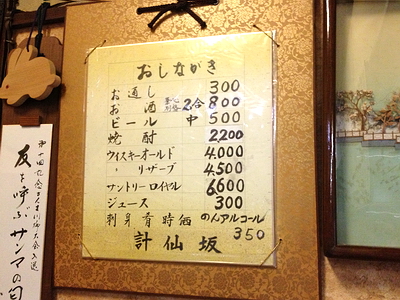 おしながき
お通し 300
お酒 2合 800
ビール 中 500
焼酎 2200
ウイスキーオールド 4,000
〃 リザーブ 4,500
サントリーローヤル 6600
ジュース 300
刺身肴時価 のんアルコール
350
計仙坂
友を呼ぶサンマの匂